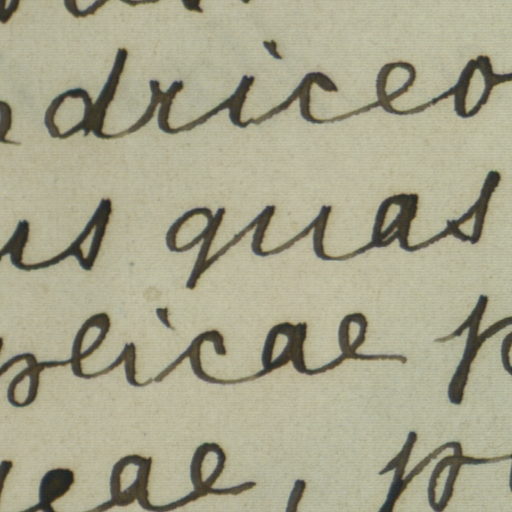 ndriceo
us quas
plicae p
geae, p